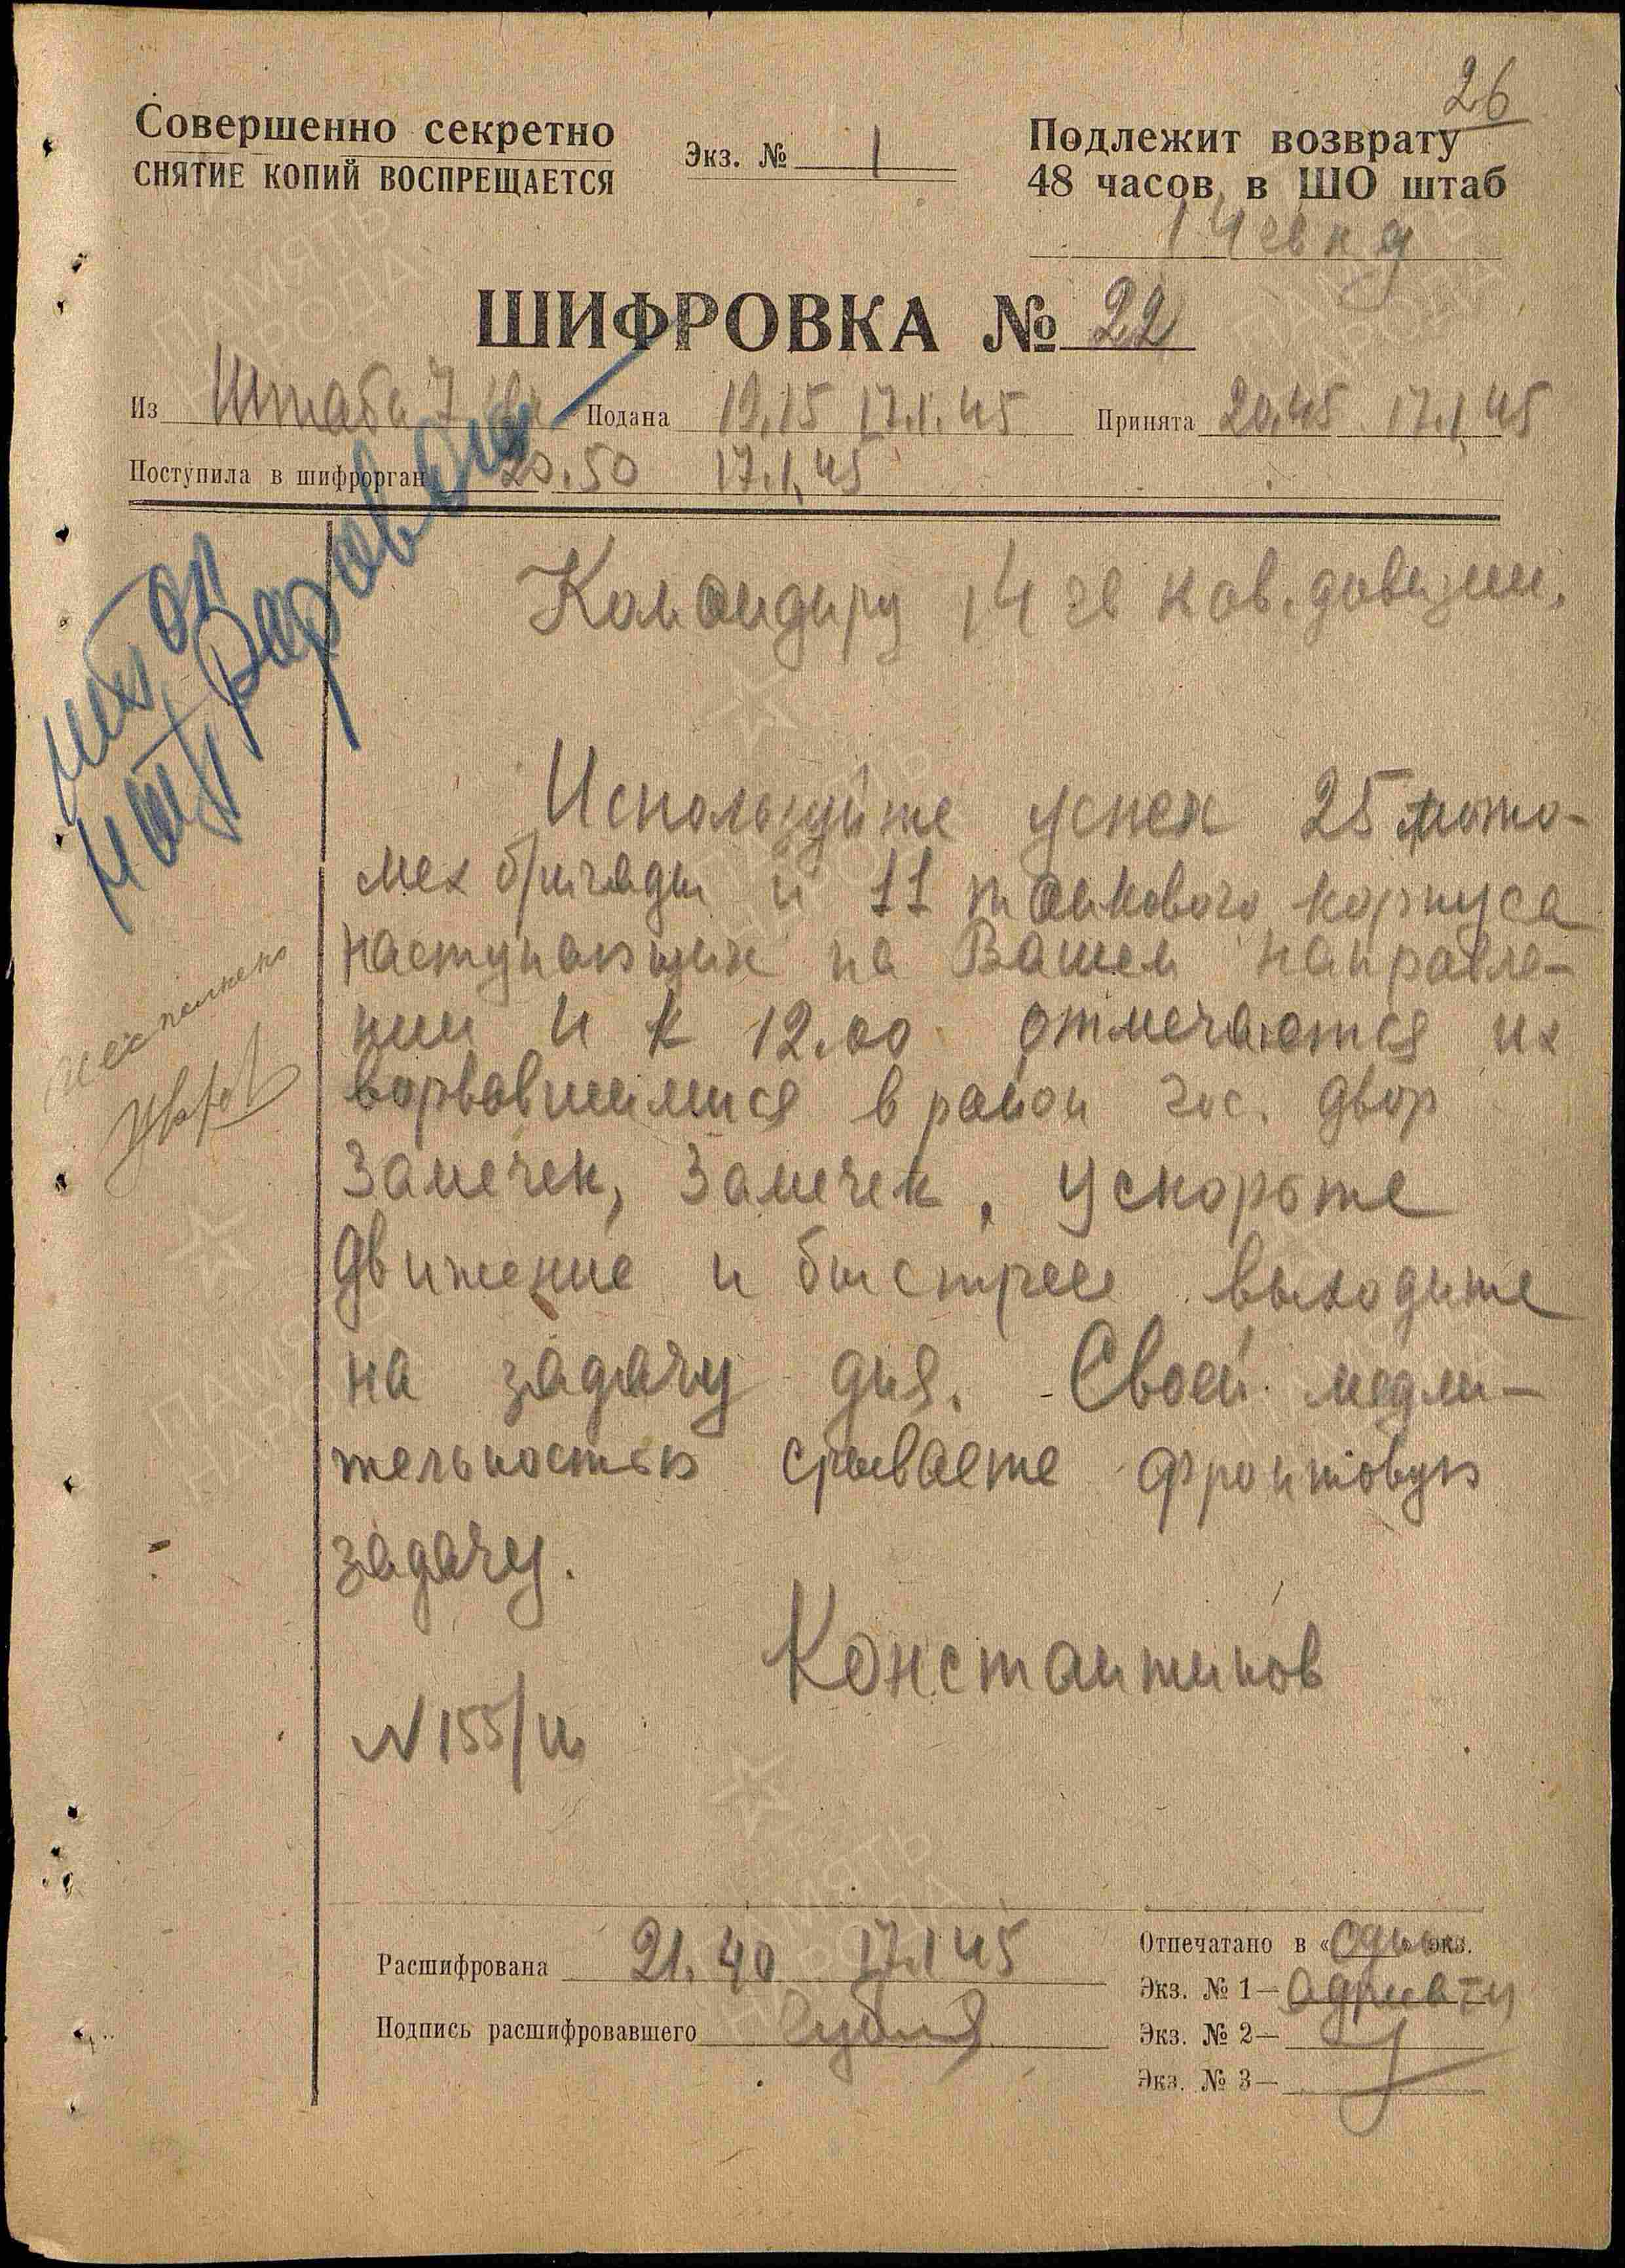 26
Совершенно секретно
СНЯТИЕ КОПИЙ ВОСПРЕЩАЕТСЯ
Экз. № 1
Подлежит возврату
48 часов в ШО штаб
14 гв к д
ШИФРОВКА № 22
Из Штаба 7 Подана 19.15 17.1.45 Принята 20.45 17.1.45
Поступила в шифрорган 20.50 17.1.45
Командиру 14 гв кав. дивизии.
Используйте успех 25 мото-
мех бригады и 11 танкового корпуса
наступающих на Вашем направле-
нии и к 12.00 отмечаются их
ворвавшимися в район гос. двор
Замечек, Замечек, ускорьте
движение и быстрее выходите
на задачу дня. Своей медли-
тельностью срываете фронтовую
задачу.
Константинов
N 155/ш
Расшифрована 21.40 17.1 45
Подпись расшифровавшего
Отпечатано в « экз.
Экз. № 1— адресату
Экз. № 2—
Экз. № 3—
ПАМЯТЬ
НАРОДА